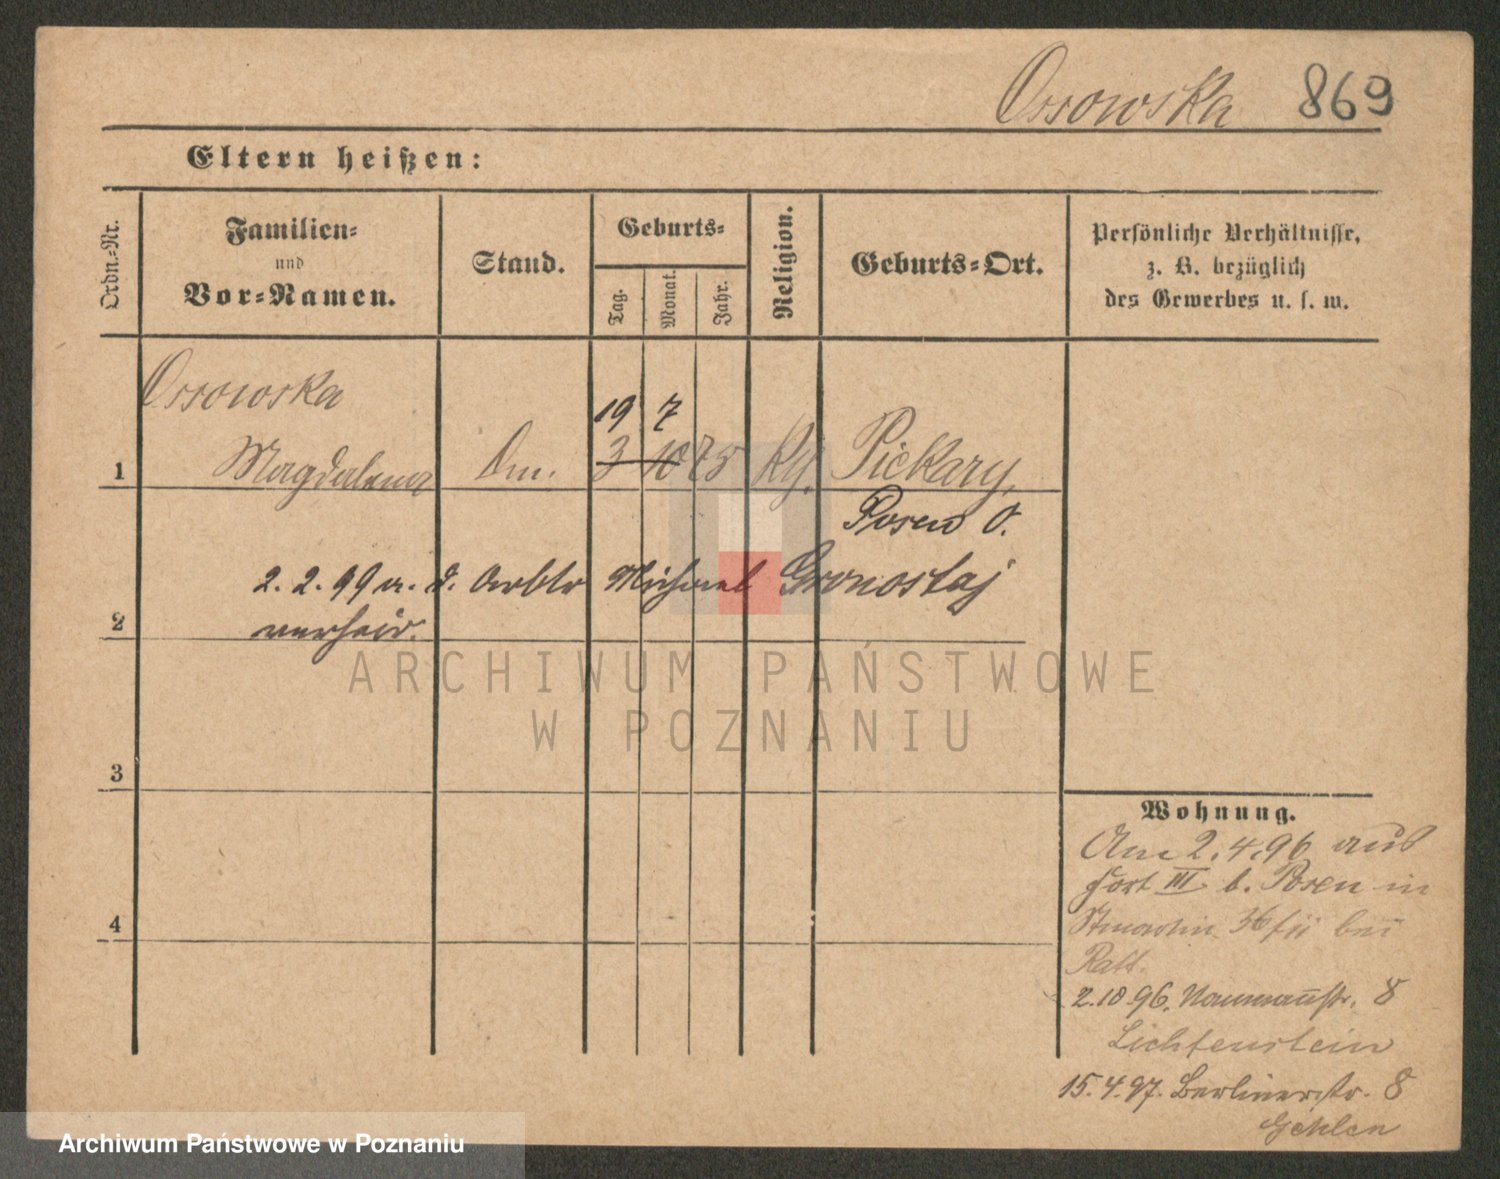 Ossowska 869
Eltern heißen:
Ordn.-Nr.
Familien-
und
Vor-Namen.
Stand.
Geburts-
Tag.
Monat.
Jahr.
Religion.
Geburts-Ort.
Persönliche Verhältnisse,
z. B. bezüglich
des Gewerbes u. s. w.
Ossowska
19 7
1 Magdalena 3 10 75 Piekary,
Posen O.
2. 2. 99 m. d. Arbtr Michael Gronostaj
2 verheir.
ARCHIWUM PAŃSTWOWE
W POZNANIU
3
4
Wohnung.
Am 2.4.96 aus
Fort III b. Posen in
Stmartin 36 bei
Ratt.
2.10.96. Naumannstr. 8
Lichtenstein
15.4.97. Berlinerstr. 8
Gehlen
Archiwum Państwowe w Poznaniu